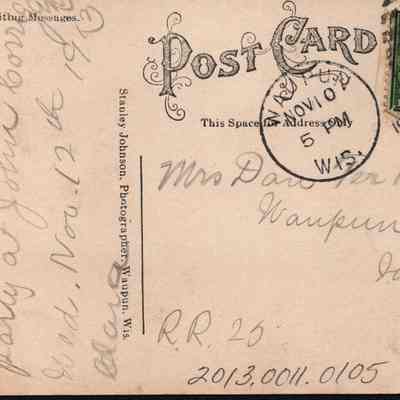 riting Messages.
party at John Corri
Wed. Nov. 12th, 1913
Clara
Stanley Johnson, Photographer, Waupun, Wis.
POST CARD
This Space for Address Only
WAUPUN
NOV 10
5 PM
WIS.
Mrs Dave Ter
Waupun
R.R. 25
2013.0011.0105